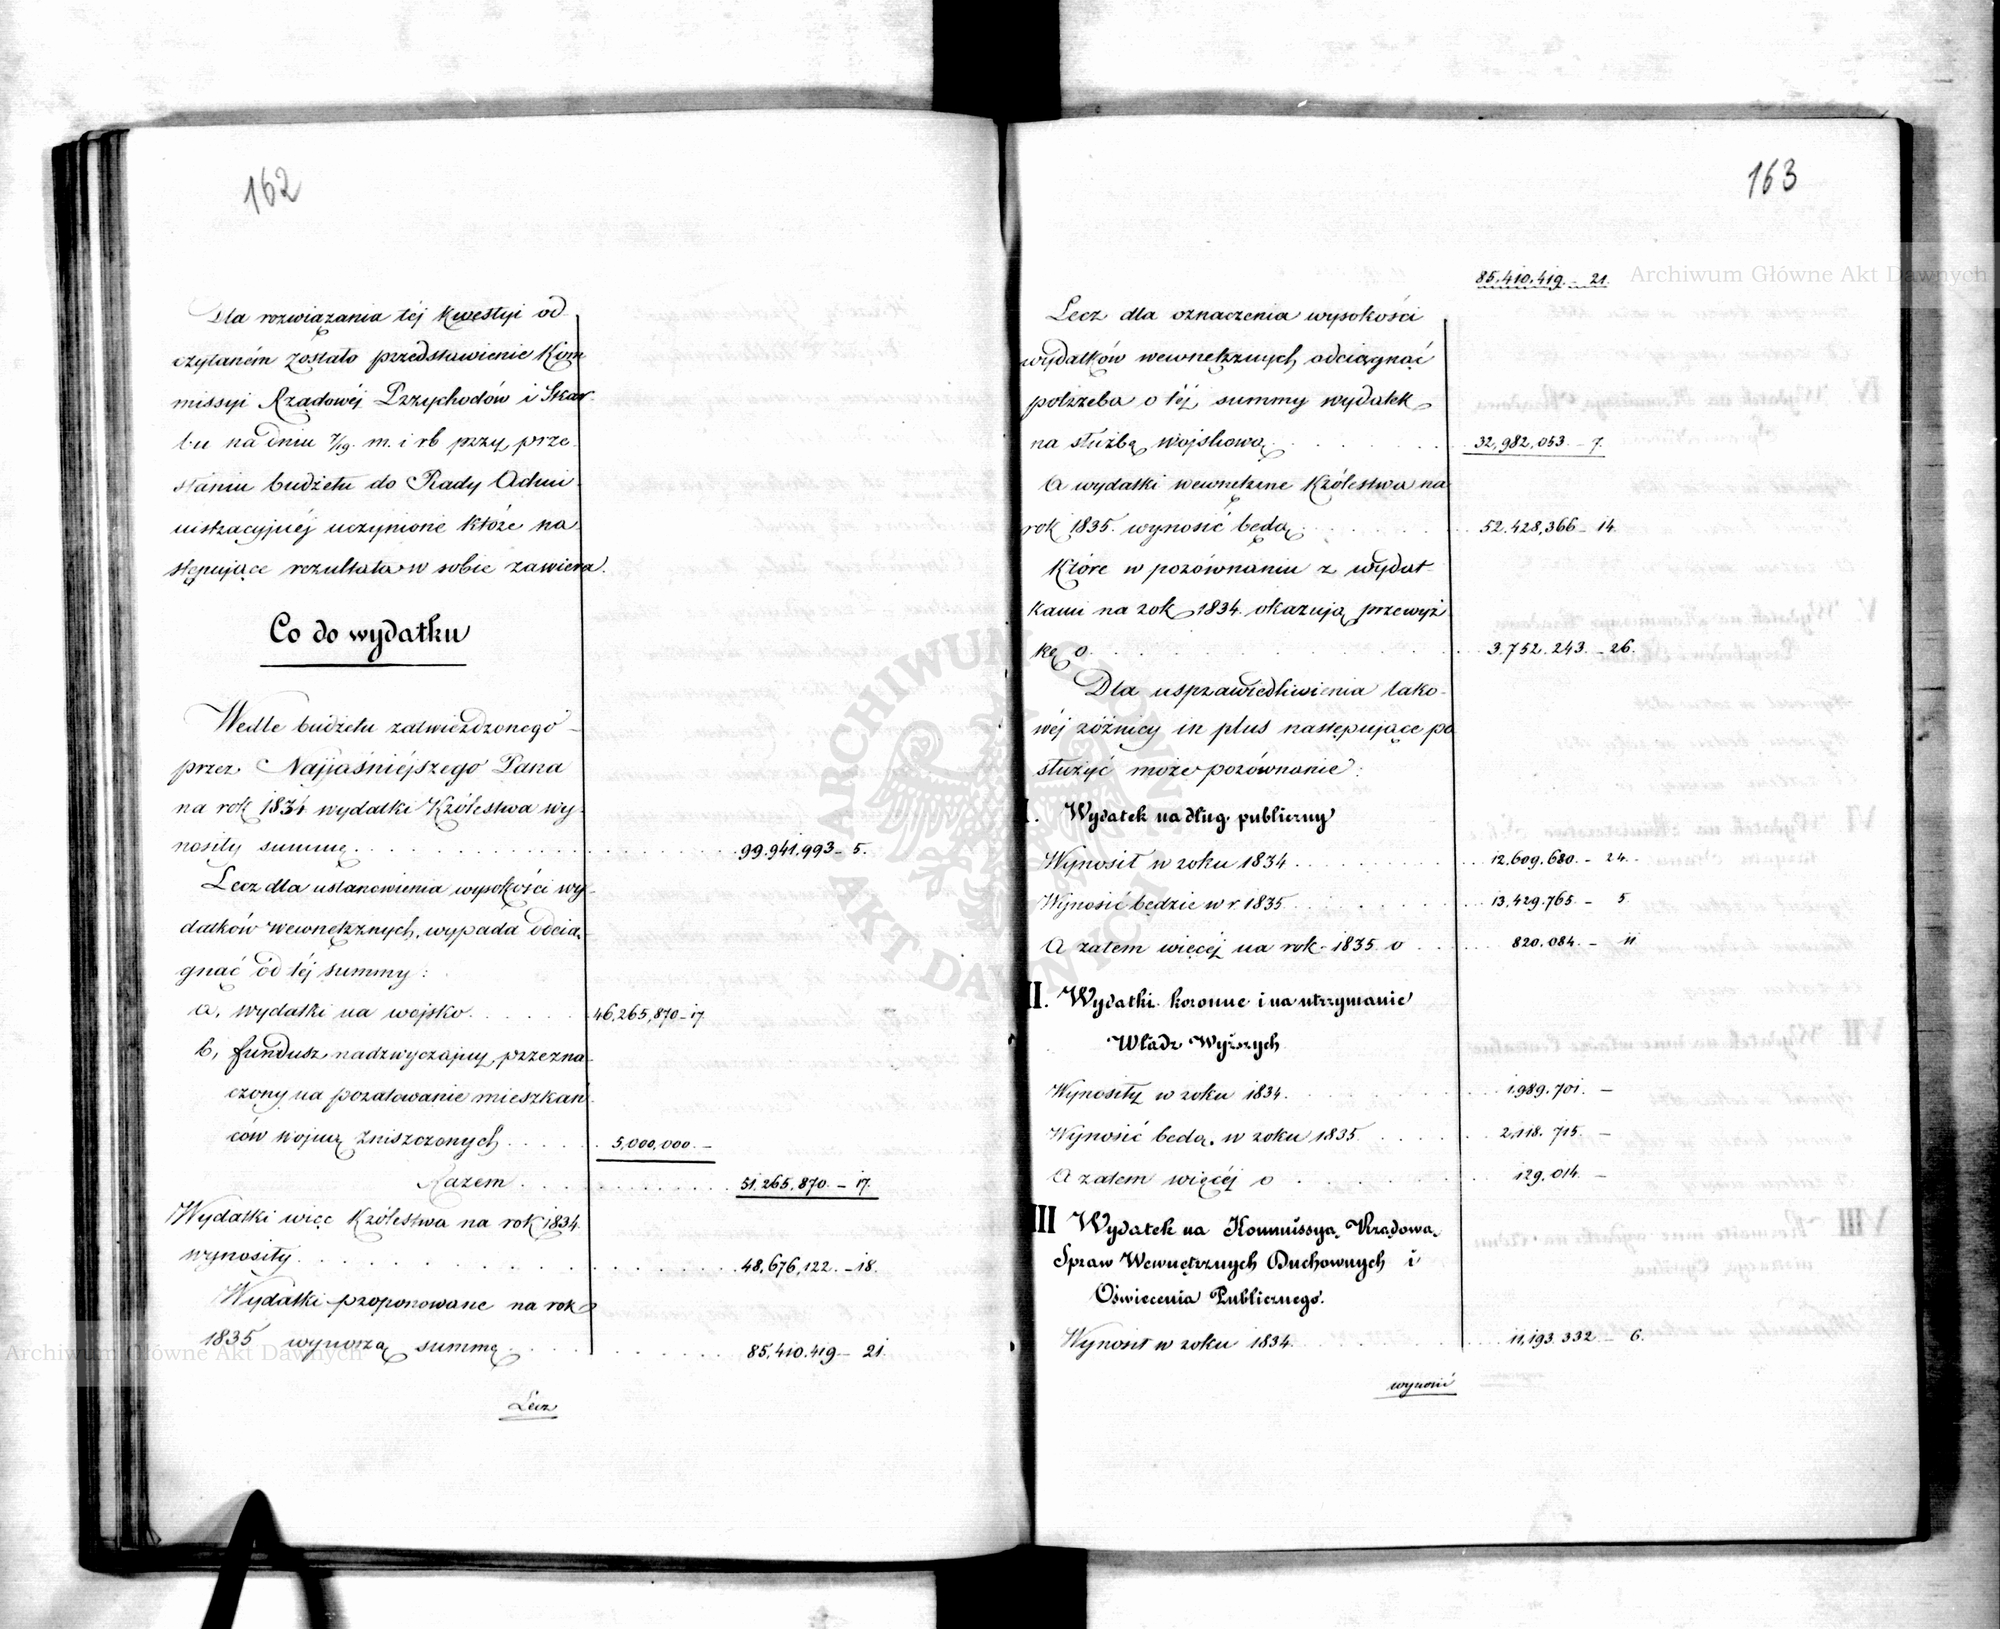 162
Dla rozwiązania téj kwestyi od
czytaném zostało przedstawienie Kom
missyi Rządowéj Przychodów i Skar-
bu na dniu 7/19. m. i rb przy prze-
słaniu budżetu do Rady Admi-
nistracyjnéj uczynione które na-
stępujące rezultata w sobie zawiera.
Co do wydatku
Wedle budżetu zatwierdzonego
przez Najjaśniejszego Pana
na rok 1834 wydatki Królestwa wy-
nosiły summę 99.941.993 – 5.
Lecz dla ustanowienia wysokości wy-
datków wewnętrznych, wypada odcią-
gnąć od téj summy:
a, wydatki na wojsko 46,265,870 – 17.
b, fundusz nadzwyczajny, przezna-
czony na poratowanie mieszkań-
ców wojną zniszczonych 5,000,000. –
Razem 51,265,870. – 17.
Wydatki więc Królestwa na rok 1834.
wynosiły 48,676,122. – 18.
Wydatki proponowane na rok
1835 wynoszą summę 85,410.419 – 21.
Lecz
163
85,410,419. – 21.
Lecz dla oznaczenia wysokości
wydatków wewnętrznych odciągnąć
potrzeba o téj summy wydatek
na służbę wojskową 32,982,053. – 7.
A wydatki wewnętrzne Królestwa na
rok 1835. wynosić będą 52.428,366 – 14.
Które w porównaniu z wydat-
kami na rok 1834. okazują przewyż-
kę o 3.752.243. – 26.
Dla usprawiedliwienia tako-
wéj różnicy in plus następujące po
służyć może porównanie:
I. Wydatek na dług publiczny
Wynosił w roku 1834 12.609.680. – 24.
Wynosić będzie w r. 1835 13.429.765. – 5.
A zatem więcéj na rok 1835 o 820.084. – 11
II. Wydatki koronne i na utrzymanie
Władz Wyższych
Wynosiły w roku 1834. 1.989.701. –
Wynosić będą w roku 1835 2,118.715. –
A zatem więcéj o 129.014. –
III Wydatek na Kommissyą Rządową
Spraw Wewnętrznych Duchownych i
Oświecenia Publicznego.
Wynosił w roku 1834. 11,193.332 – 6.
wynosić
Archiwum Główne Akt Dawnych
Archiwum Główne Akt Dawnych
ARCHIWUM GŁÓWNE AKT DAWNYCH